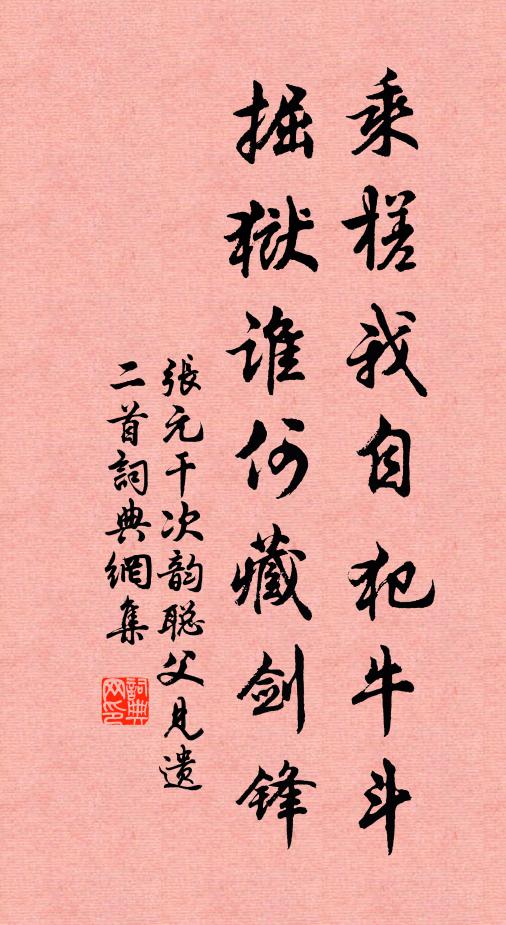 乘槎我自犯牛斗
掘狱谁何藏剑锋
張元干次韵聪父见遗
二首詞典網集
詞典網印